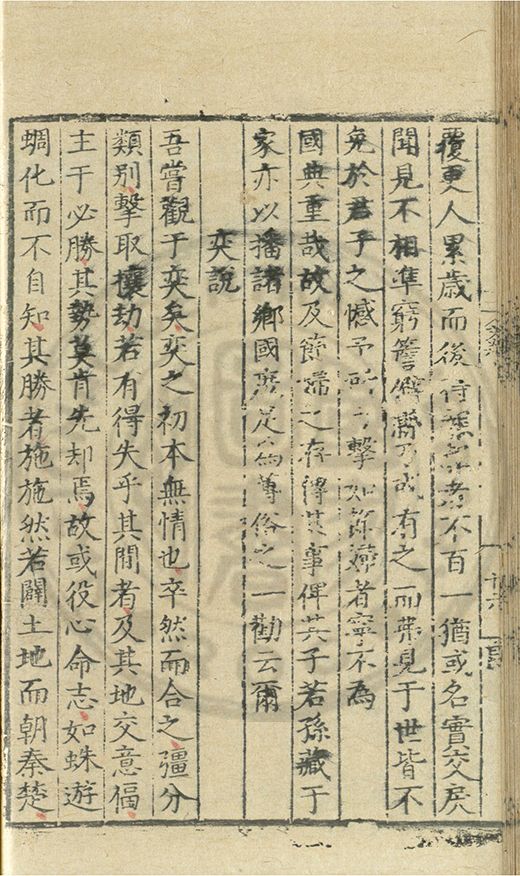 覆更人累歲而後者不百一猶或名實交戾
聞見不相準窮簷僻或有之而弗見于世皆不
免於君子之憾予所擊如孫婦者寧不為
國典重哉故及節婦之存得其事俾其子若孫藏于
家亦以播諸鄉國庶足為薄俗之一勸云爾
奕說
吾嘗觀于奕矣奕之初本無情也卒然而合之疆分
類別擊取攘劫若有得失乎其間者及其地交意偪
主于必勝其勢莫肯先却焉故或役心命志如蛛遊
蜩化而不自知其勝者施施然若闢土地而朝秦楚